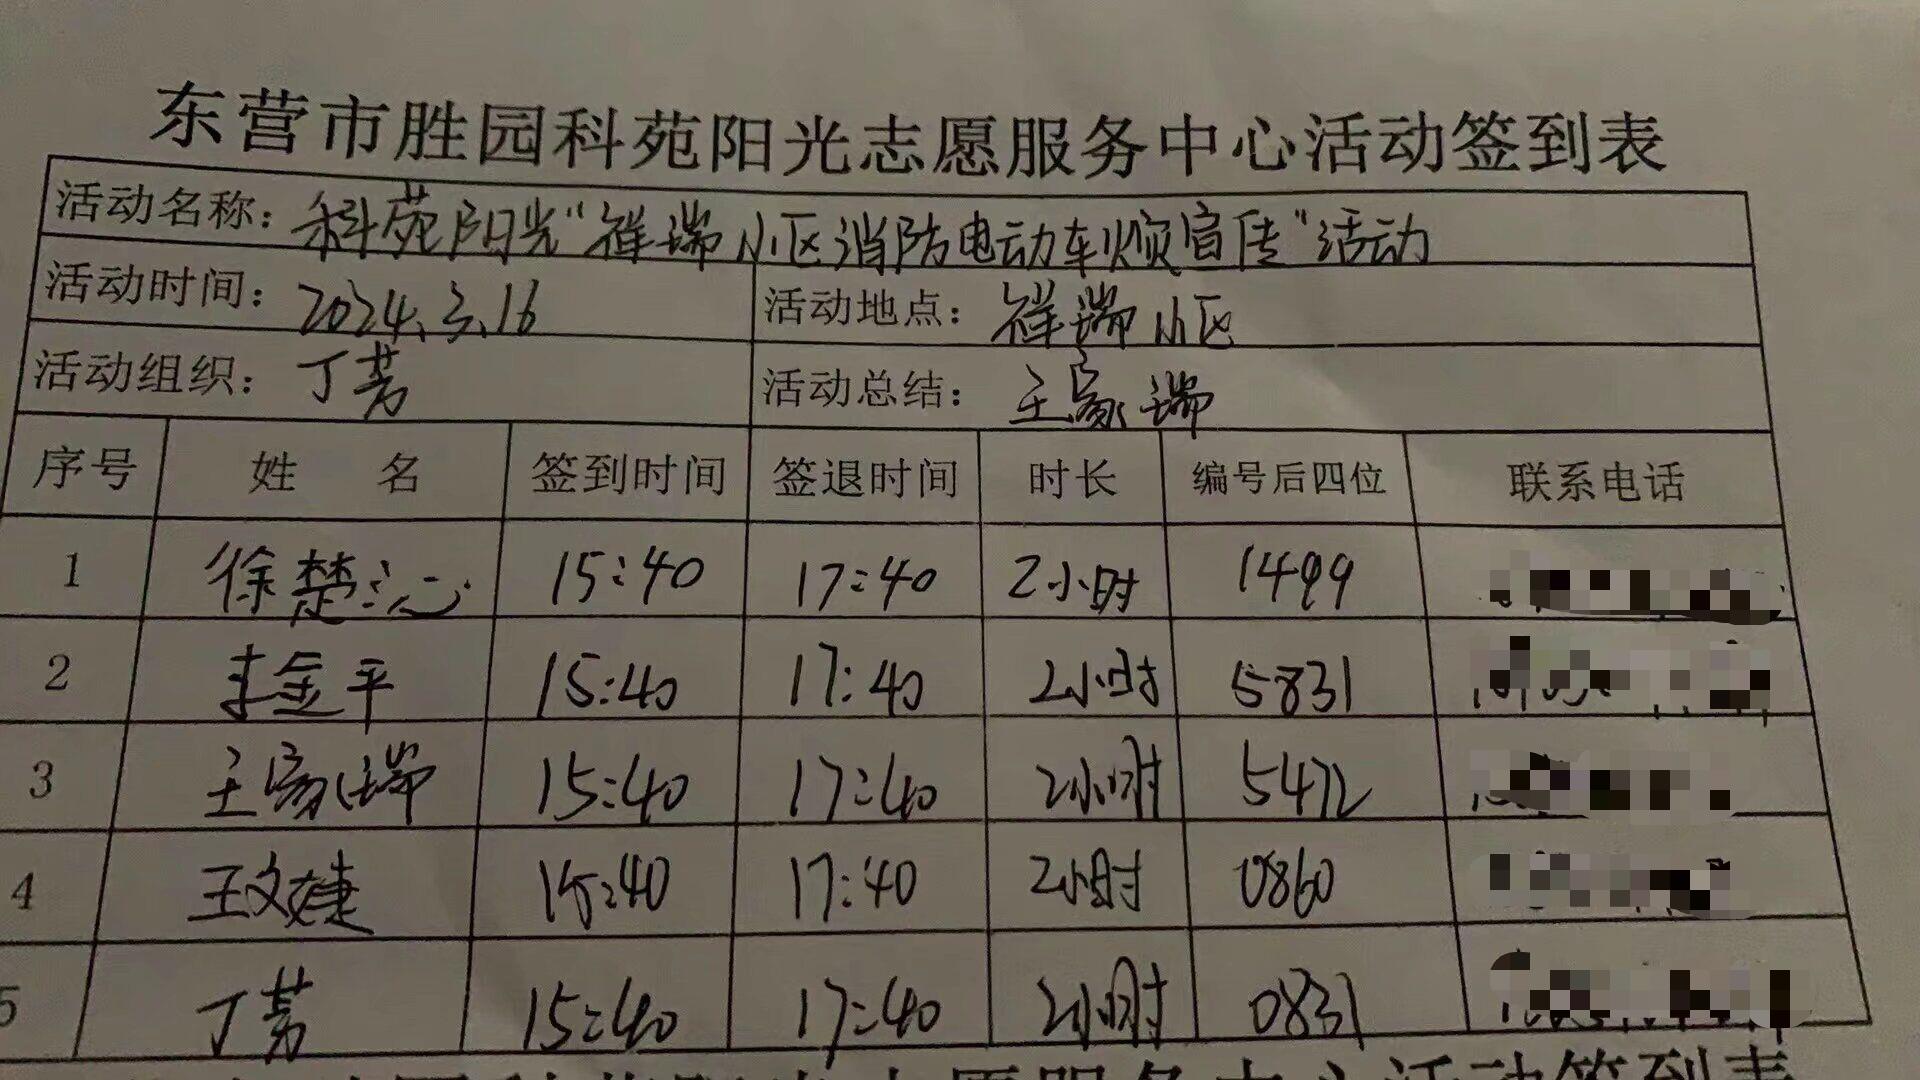 东营市胜园科苑阳光志愿服务中心活动签到表
活动名称：科苑阳光“祥瑞小区消防电动车燃宣传”活动
活动时间：2024.3.16 活动地点：祥瑞小区
活动组织：丁芳 活动总结：王家瑞
序号 姓名 签到时间 签退时间 时长 编号后四位 联系电话
1 徐楚沁 15:40 17:40 2小时 1499
2 李金平 15:40 17:40 2小时 5831
3 王家瑞 15:40 17:40 2小时 5472
4 王文婕 15:40 17:40 2小时 0860
5 丁芳 15:40 17:40 2小时 0831
志愿服务中心活动签到表